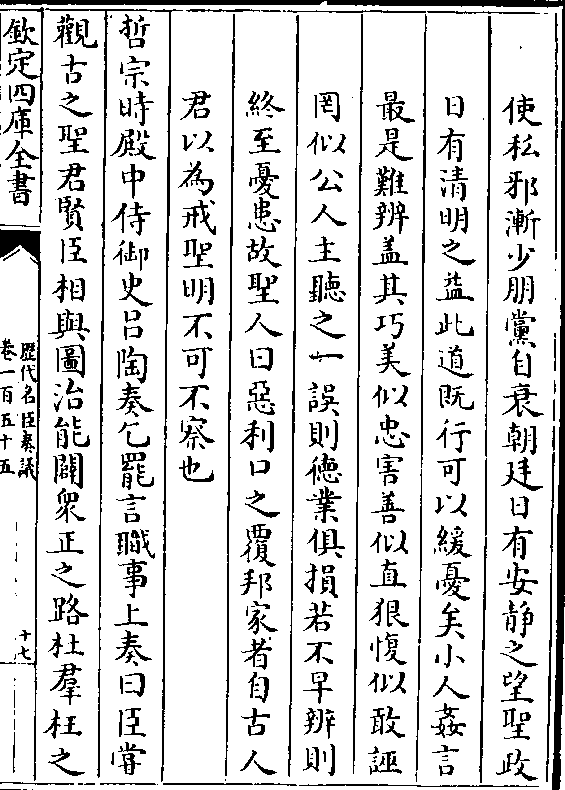 使私邪漸少朋黨自衰朝廷日有安靜之望聖政
日有清明之益此道既行可以緩憂矣小人姦言
最是難辨盖其巧美似忠害善似直狠愎似敢誣
罔似公人主聽之一誤則徳業俱損若不早辨則
終至憂患故聖人曰惡利口之覆邦家者自古人
君以為戒聖明不可不察也
哲宗時殿中侍御史呂陶奏乞罷言職事上奏曰臣甞
觀古之聖君賢臣相與圖治能闢衆正之路杜羣枉之
欽定四庫全書
歴代名臣奏議
卷一百五十五
十七